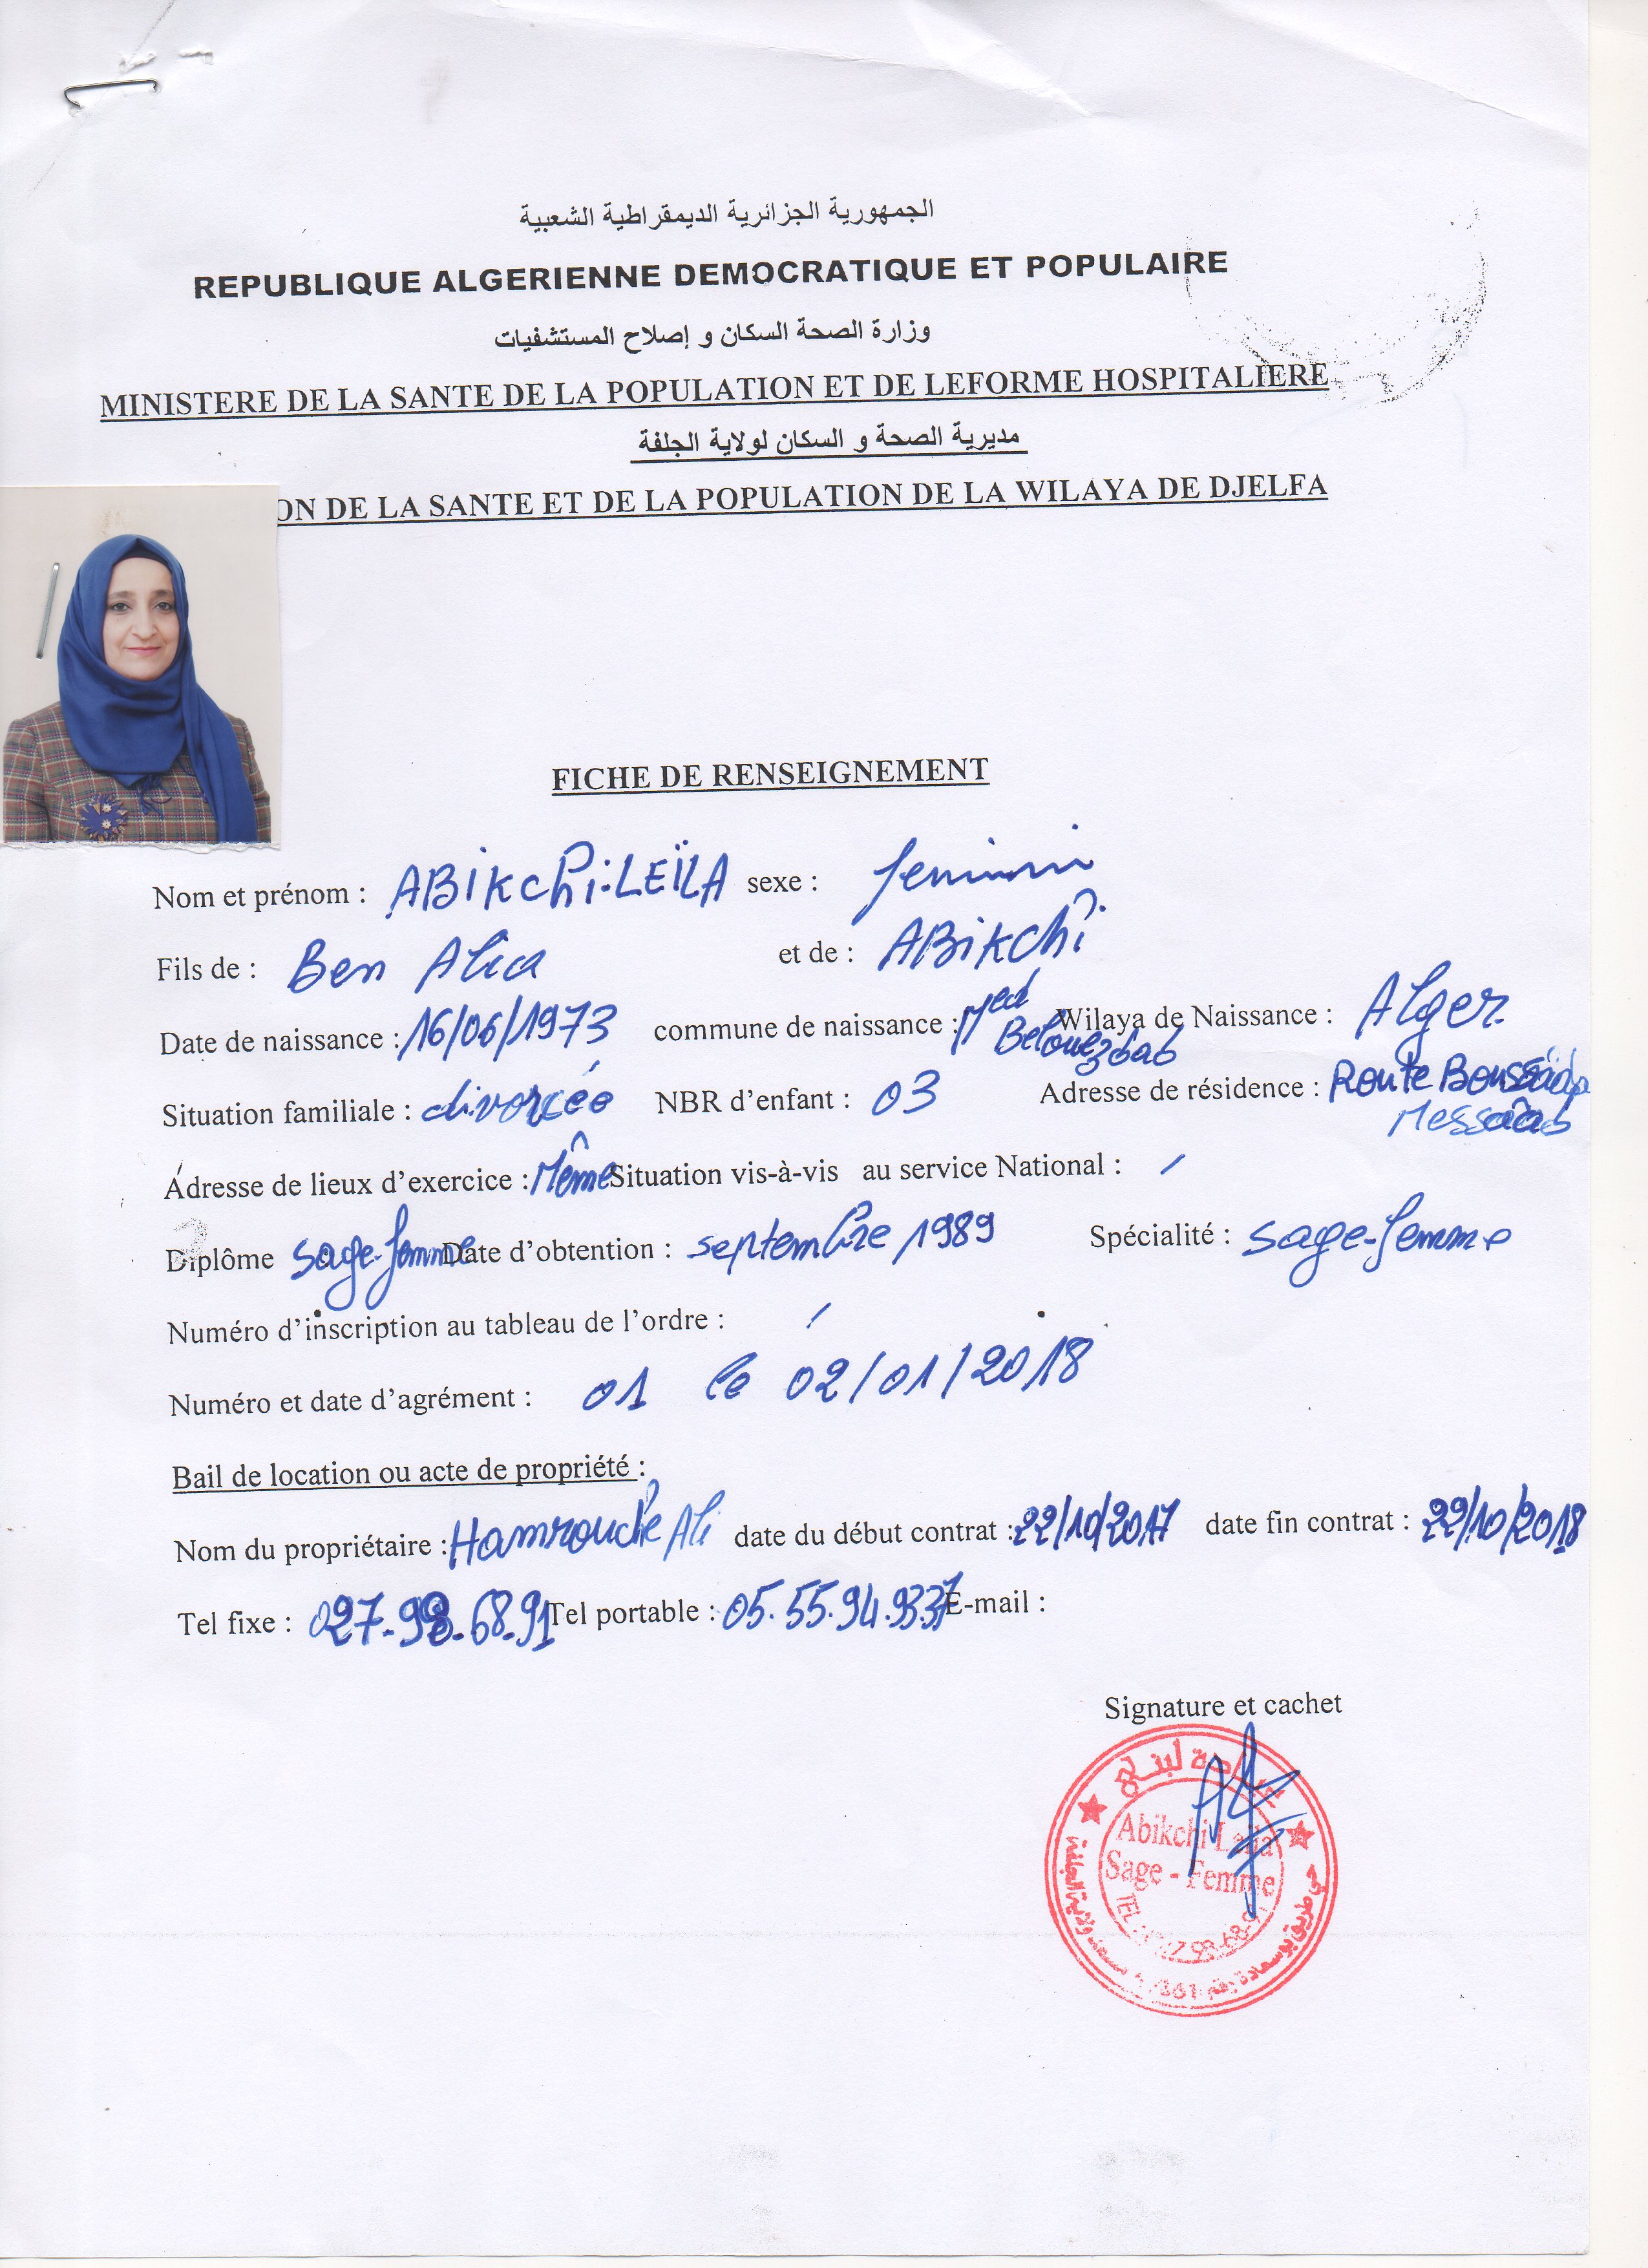 الجمهورية الجزائرية الديمقراطية الشعبية
REPUBLIQUE ALGERIENNE DEMOCRATIQUE ET POPULAIRE
وزارة الصحة السكان و إصلاح المستشفيات
MINISTERE DE LA SANTE DE LA POPULATION ET DE LEFORME HOSPITALIERE
مديرية الصحة و السكان لولاية الجلفة
ON DE LA SANTE ET DE LA POPULATION DE LA WILAYA DE DJELFA
FICHE DE RENSEIGNEMENT
Nom et prénom : ABikchi:LEÏLA sexe : feminin
Fils de : Ben Alia et de : ABikchi
Date de naissance : 16/06/1973 commune de naissance : Med Belouezdad Wilaya de Naissance : Alger
Situation familiale : divorcée NBR d'enfant : 03 Adresse de résidence : Route Boussaâda
Messaâd
Adresse de lieux d'exercice : Même Situation vis-à-vis au service National : /
Diplôme sage-femme Date d'obtention : septembre 1989 Spécialité : sage-femme
Numéro d'inscription au tableau de l'ordre : /
Numéro et date d'agrément : 01 le 02/01/2018
Bail de location ou acte de propriété :
Nom du propriétaire : Hamrouche Ali date du début contrat : 22/10/2017 date fin contrat : 22/10/2018
Tel fixe : 027-98-68-91 Tel portable : 05.55.94.9337 E-mail :
Signature et cachet
Abikchi Leila
Sage - Femme